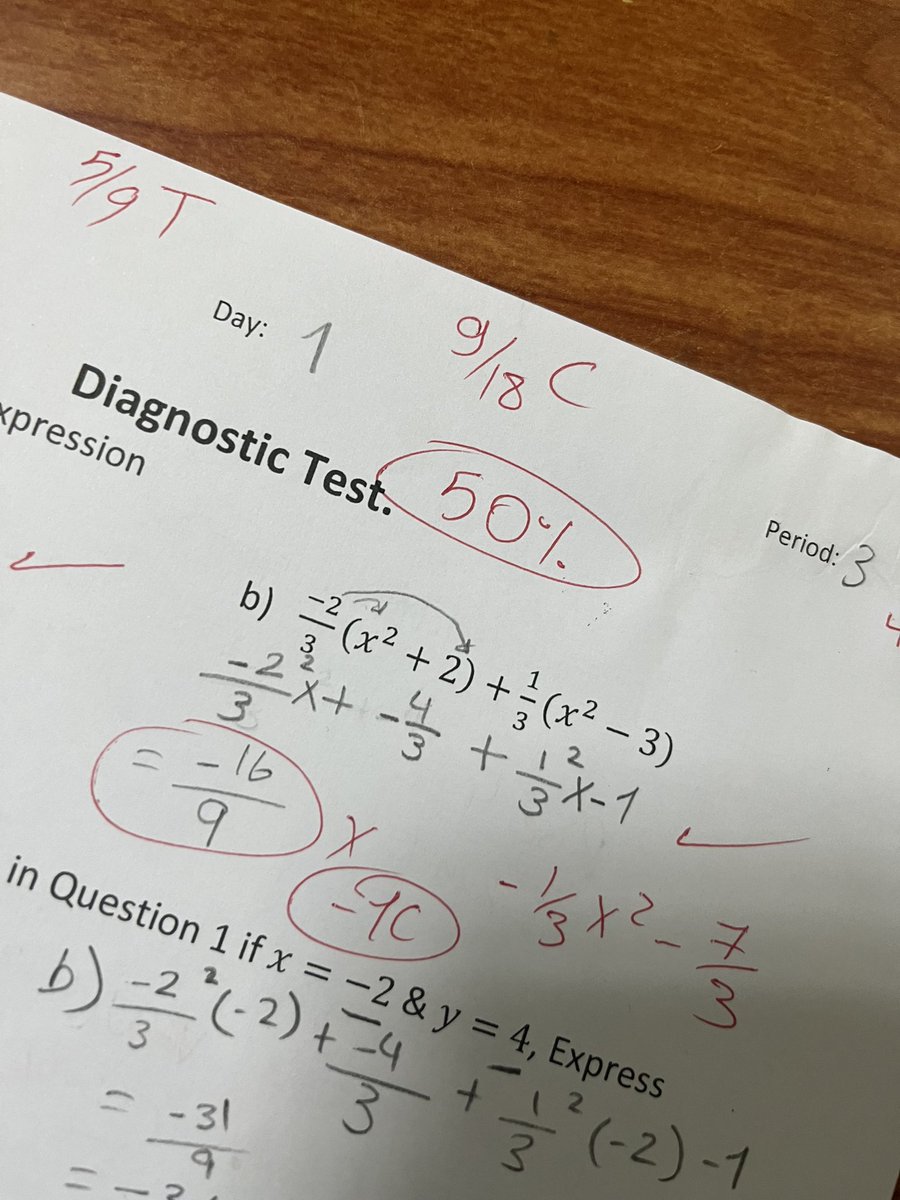 5/9 T
Day: 1
9/18 C
Diagnostic Test.
50%
Period: 3
xpression
b) -2/3 (x² + 2) + 1/3 (x² - 3)
-2/3 ²x + -4/3 + 1/3 ²x - 1
= -16/9 x
-1C
-1/3 x² - 7/3
in Question 1 if x = -2 & y = 4, Express
b) -2/3 ²(-2) + -4/3 + 1/3 ²(-2) - 1
= -31/9